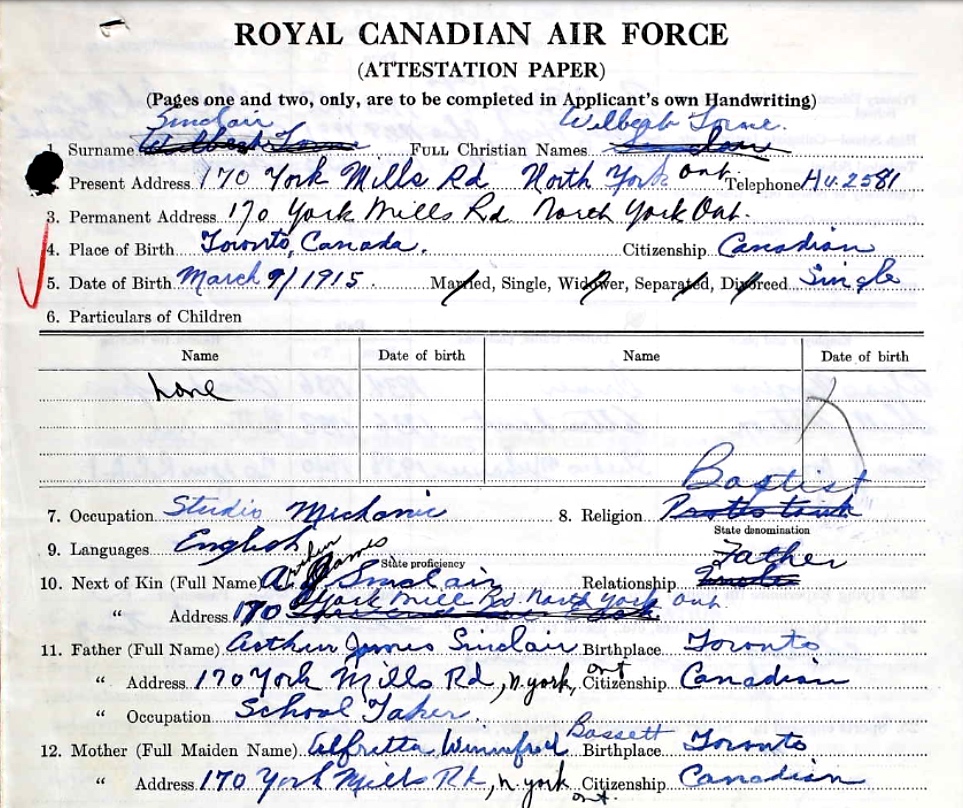 ROYAL CANADIAN AIR FORCE
(ATTESTATION PAPER)
(Pages one and two, only, are to be completed in Applicant's own Handwriting)
Sinclair Wilbert Torne.
1. Surname FULL Christian Names
Present Address 170 York Mills Rd North York Ont Telephone Hu. 2581
3. Permanent Address 170 York Mills Rd North York Ont.
4. Place of Birth Toronto, Canada. Citizenship Canadian
5. Date of Birth March 9/1915. Married, Single, Widower, Separated, Divorced Single
6. Particulars of Children
Name Date of birth Name Date of birth
None
Baptist
7. Occupation Studio Mechanic 8. Religion
State denomination
9. Languages English Father
State proficiency
James
10. Next of Kin (Full Name) A. J. Sinclair Relationship
York Mill Rd. North York Ont.
" Address 170
11. Father (Full Name) Arthur James Sinclair Birthplace Toronto
" Address 170 York Mills Rd, N. York, Ont Citizenship Canadian
" Occupation School Taker.
Bassett
12. Mother (Full Maiden Name) Alfretta Winnifred Birthplace Toronto
" Address 170 York Mills Rd, N. York Ont. Citizenship Canadian